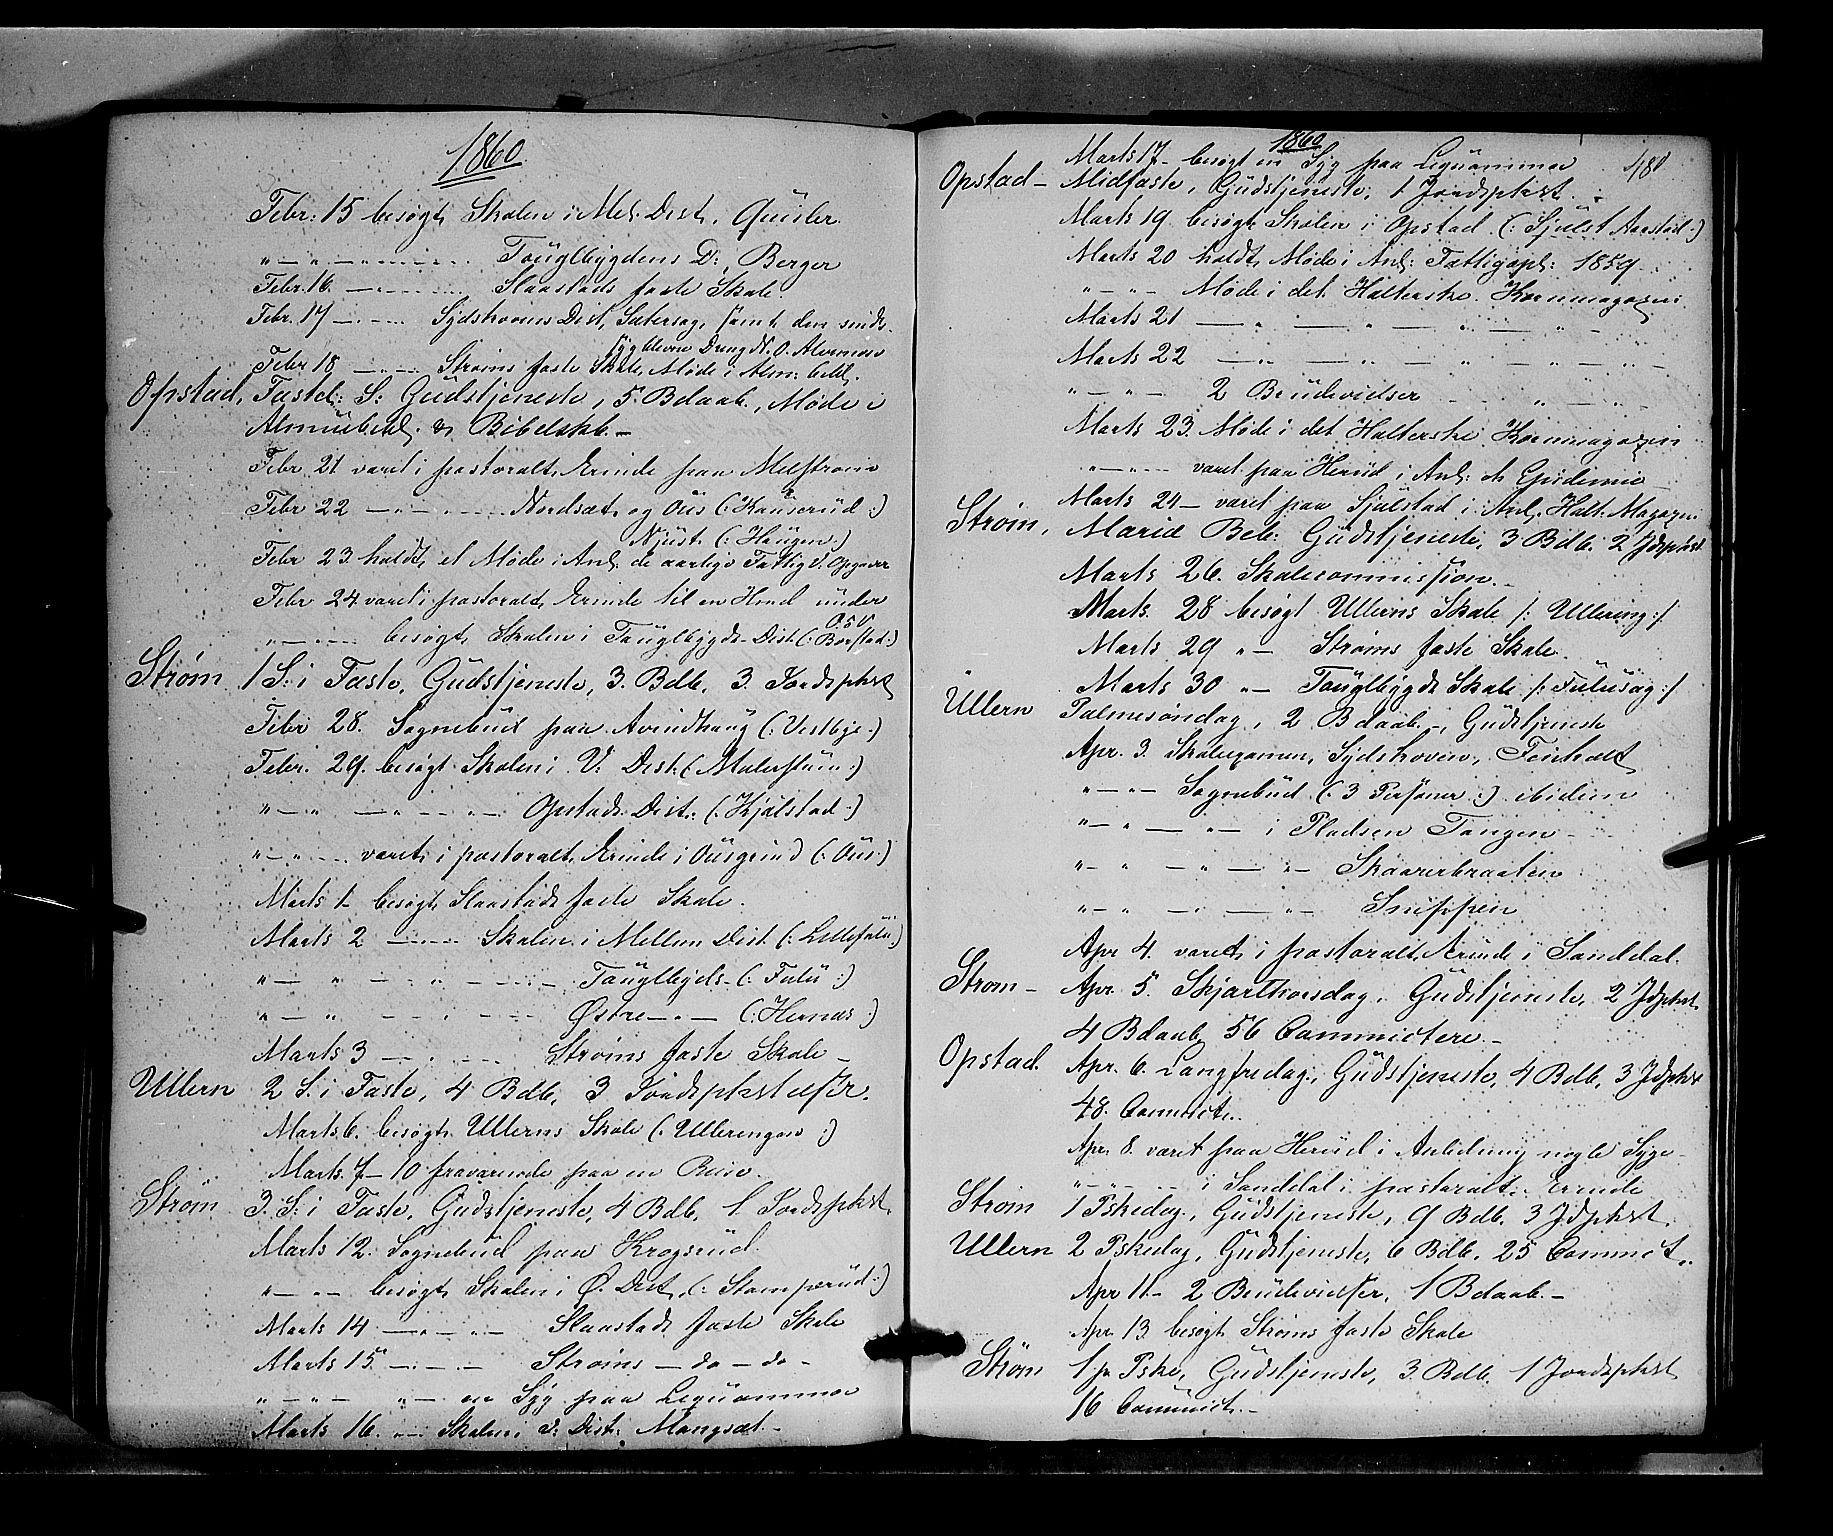 1860.
Febr: 15 besøgt Skolen i Mel. Dist.
" — " — Touglbygdens D: Berger
Febr. 16. — " — Slaastads faste Skole.
Febr. 17 — " — Sydskovens Dist, Sætersag, samt den sinds-
syg blevne Dreng
Febr 18 — " — Strøms faste Skole, Møde i Alm:
Opstad, Fastel: S: Gudstjeneste, 5 Bdaab, Møde i
Almuebibl. & Bibelskb. —
Febr 21 været i pastoralt Ærinde paa Melstrøm
Febr 22 — " — Nordsæt, og Ous (: Kauserud :)
Njust (: Haugen :)
Febr 23 holdt et Møde i Anl: de aarlige Fattigv. Opgaver
Febr 24 været i pastoralt Ærinde til en under
" — " — besøgt Skolen i Touglbygds Dist (: Borstad :)
Strøm 1 S: i Faste, Gudstjeneste, 3. Bdb, 3. Jordspkst
Febr 28. Sognebud paa Avindhaug (: Vestbye :)
Febr. 29. besøgt Skolen i V: Dist:
" — " — " — Opstads Dist: (: Kjølstad :)
" — " — været i pastoralt Ærinde i (: Ous :)
Marts 1 besøgt Slaastads faste Skole.
Marts 2 — " — Skolen i Mellem Dist (: Lillefulu :)
" — " — " — Touglbygds — (: Fulu :)
" — " — " — Østre — " — (: Hernæs :)
Marts 3 — " — Strøms faste Skole —
Ullern 2 S: i Faste, 4 Bdb, 3 Jordspkstelser.
Marts 6. besøgt Ullerns Skole (: Ullerengen :)
Marts 7 – 10 fraværende paa en Reise.
Strøm 3. S: i Faste, Gudstjeneste, 4 Bdb, 1 Jordspkst.
Marts 12. Sognebud paa Krogsrud.
" — " — besøgt Skolen i Ø. Dist, (: Stomperud :)
Marts 14 — " — " — Slaastads faste Skole
Marts 15. — " — Strøms — do — do —
" — " — " — en Syg paa Lequammen
Marts 16. — " — Skolen V: Dist: Mangsæt —
1860
480
Marts 17 — besøgt en Syg paa Lequammen
Opstad — Midfaste, Gudstjeneste, 1 Jordspkst.
Marts 19 besøgt Skolen i Opstad (: Sjulst Aarstad :)
Marts 20 holdt Møde i Anl: Fattigopl: 1859.
" — " — Møde i det Halterske Kornmagazin
Marts 21 — " — " — " — " —
Marts 22 — " — " — " — " —
" — " — 2 Brudevielser
Marts 23. Møde i det Halterske Kornmagazin
" — " — været paa Herud i Anl: et Gudemie
Marts 24 — været paa Sjulstad i Anl. Halt. Magazin
Strøm, Mariæ Beb: Gudstjeneste, 3 Bdb. 2 Jdspkst
Marts 26. Skolecommission. —
Marts 28 besøgt Ullerns Skole /: Ullering :/
Marts 29 " — Strøms faste Skole.
Marts 30 " — Touglbygds Skole /: Fulusag :/
Ullern Palmesøndag, 2 Bdaab —, Gudstjeneste
Apr. 3. Skoleexamen, Sydskoven,
" — " — Sognebud (: 3 Personer :) ibidem
" — " — " — i Pladsen Tangen —
" — " — " — " — Skaarerbraaten
" — " — " — " — Snippen
Apr 4. været i pastoralt Ærinde i Sanddal.
Strøm — Apr. 5. Skjærthorsdag, Gudstjeneste, 2 Jdpkst
4 Bdaab, 56 Communictere. —
Opstad. Apr. 6. Langfredag, Gudstjeneste, 4 Bdb, 3 Jdpkst
48. Communict.
Apr. 8. været paa Herud i Anledning nogle Syge —
" — " — i Sanddal i pastoralt Ærinde
Strøm 1 Pskedag, Gudstjeneste, 9 Bdb. 3 Jdpkst.
Ullern 2 Pskedag, Gudstjeneste, 6 Bdb, 25 Communict.
Apr 11 — 2 Brudevielser, 1 Bdaab —
Apr. 13 besøgt Strøms faste Skole
Strøm 1 p Pske, Gudstjeneste, 3. Bdb. 1 Jordspkst
16 Communict. —